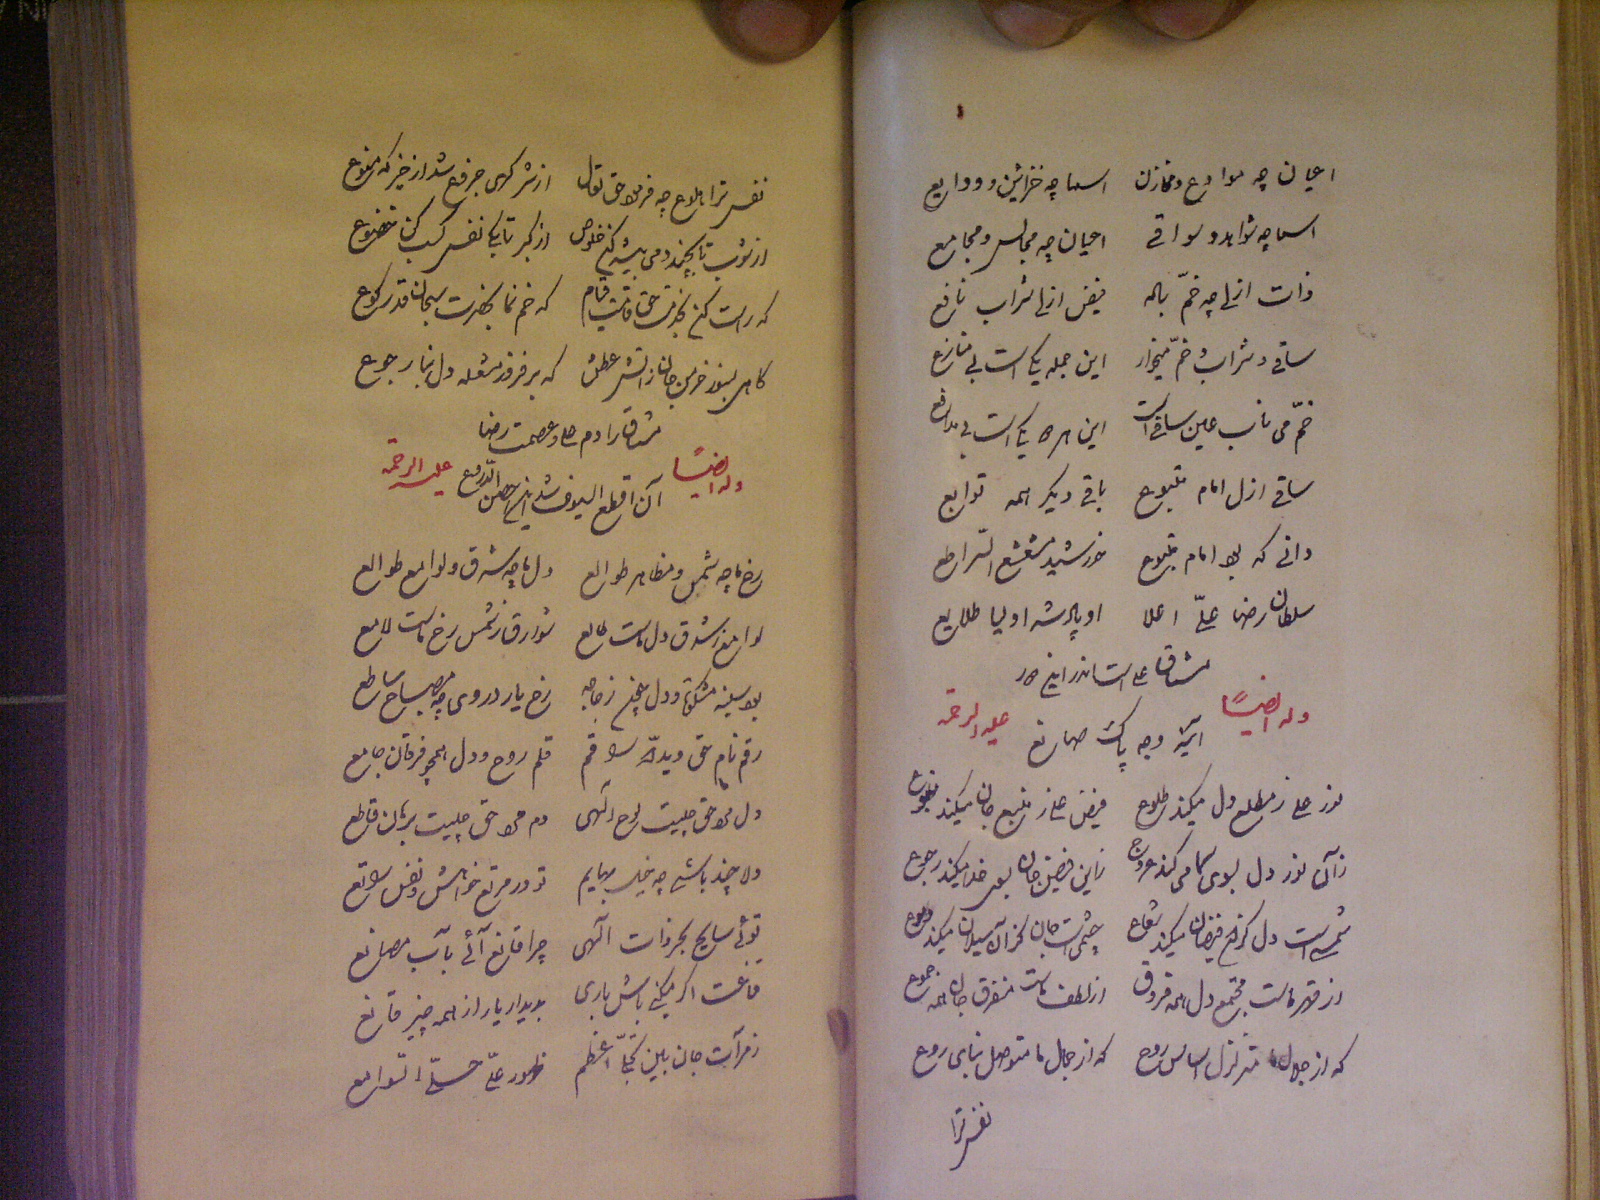 اعیان چه مواضع و مخازن اسما چه خزائن و ودایع
اسما چه شواهد و سواقی اعیان چه مجالس و مجامع
ذات ازلی چه خمّ باله فیض ازلی شراب نافع
ساقی و شراب و خمّ میخوار این جمله یکی است بی منازع
خمّ می ناب عین ساقی است این هر سه یکی است بی مدافع
ساقی ازل امام متبوع باقی دیگر همه توابع
دانی که بود امام متبوع خورشید مشعشع
سلطان رضا علیّ اعلا او پادشه اولیا طلایع
مشتاق علی است اندر این دور
وله ایضاً آئینه وجه پاک صانع علیه الرحمة
نور علی ز مطلع دل میکند طلوع فیض علی ز منبع جان میکند نبوع
زآن نور دل بسوی سما می کند عروج زاین فیض جان بسوی خدا میکند رجوع
شمسی است دل کز او فیضان میکند شعاع چشمی است جان کز آن سیلان میکند دموع
از قهر ماست مجتمع دل همه فروق از لطف ماست متفرق جان همه جموع
که از جلال ما متزلزل اساس روح که از جمال ما متوصل بنای روع
نفس ترا
نفس ترا هلوع چه فرمود حق تعالی از شر کهی جزوع شد از خیر که منوع
از شوب تا بچند دمی پیشه کن خلوص از کبر تا بکی نفسی کسب کن خضوع
که راست کن بخدمت حق قامت قیام که خم نما بحضرت سبحان قد رکوع
کاهی بسوز خرمن جان ز آتش عطش که برفروز مشعله دل بنار جوع
مشتاق را دم علی و عصمت رضا
وله ایضاً آن اقطع السیوف شد این احصن الدّروع علیه الرحمة
رخ ما چه شمس و مظاهر طوالع دل ما چه شرق و لوامع طوالع
لوامع ز شرق دل ماست طالع شوارق ز شمس رخ ماست لامع
بود سینه مشکوة و دل همچون زجاجه رخ یار در وی چه مصباح ساطع
رقم نام حق و یدالله راقم قلم روح و دل همچو فرقان جامع
دل محو حق چیست لوح الهی دم محو حق چیست برهان قاطع
دلا چند باشی چه خیل بهایم تو در مرتع خواهش نفس راتع
توئی سابح بحر ذات الهی چرا قانع آئی بآب مصانع
قناعت اگر میکنی باش باری بدیدار یار از همه چیز قانع
ز مرآت جان بین تجلّی اعظم ظهور علیّ